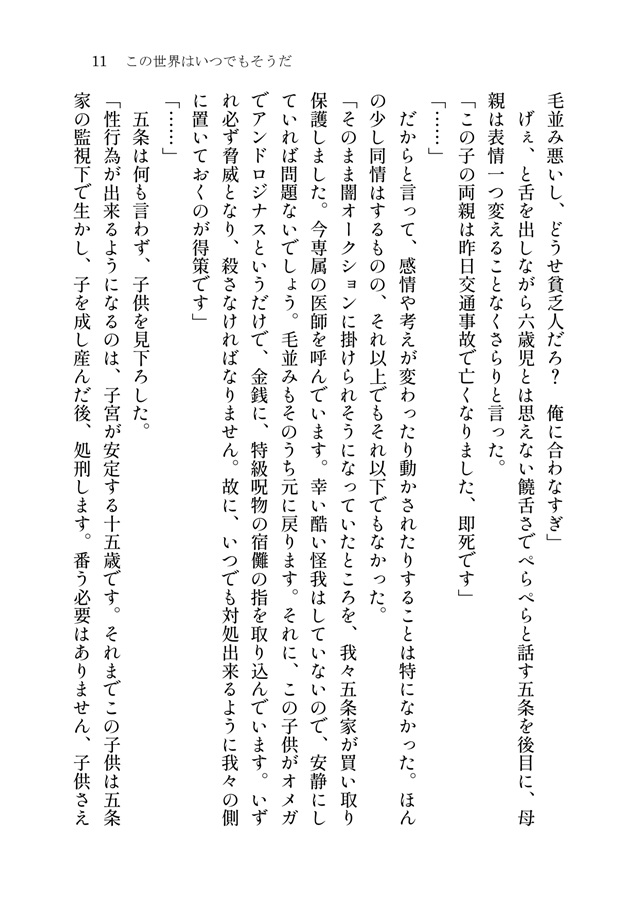 11 この世界はいつでもそうだ
毛並み悪いし、どうせ貧乏人だろ？　俺に合わなすぎ」
　げぇ、と舌を出しながら六歳児とは思えない饒舌さでぺらぺらと話す五条を後目に、母
親は表情一つ変えることなくさらりと言った。
「この子の両親は昨日交通事故で亡くなりました、即死です」
「……」
　だからと言って、感情や考えが変わったり動かされたりすることは特になかった。ほん
の少し同情はするものの、それ以上でもそれ以下でもなかった。
「そのまま闇オークションに掛けられそうになっていたところを、我々五条家が買い取り
保護しました。今専属の医師を呼んでいます。幸い酷い怪我はしていないので、安静にし
ていれば問題ないでしょう。毛並みもそのうち元に戻ります。それに、この子供がオメガ
でアンドロジナスというだけで、金銭に、特級呪物の宿儺の指を取り込んでいます。いず
れ必ず脅威となり、殺さなければなりません。故に、いつでも対処出来るように我々の側
に置いておくのが得策です」
「……」
　五条は何も言わず、子供を見下ろした。
「性行為が出来るようになるのは、子宮が安定する十五歳です。それまでこの子供は五条
家の監視下で生かし、子を成し産んだ後、処刑します。番う必要はありません、子供さえ